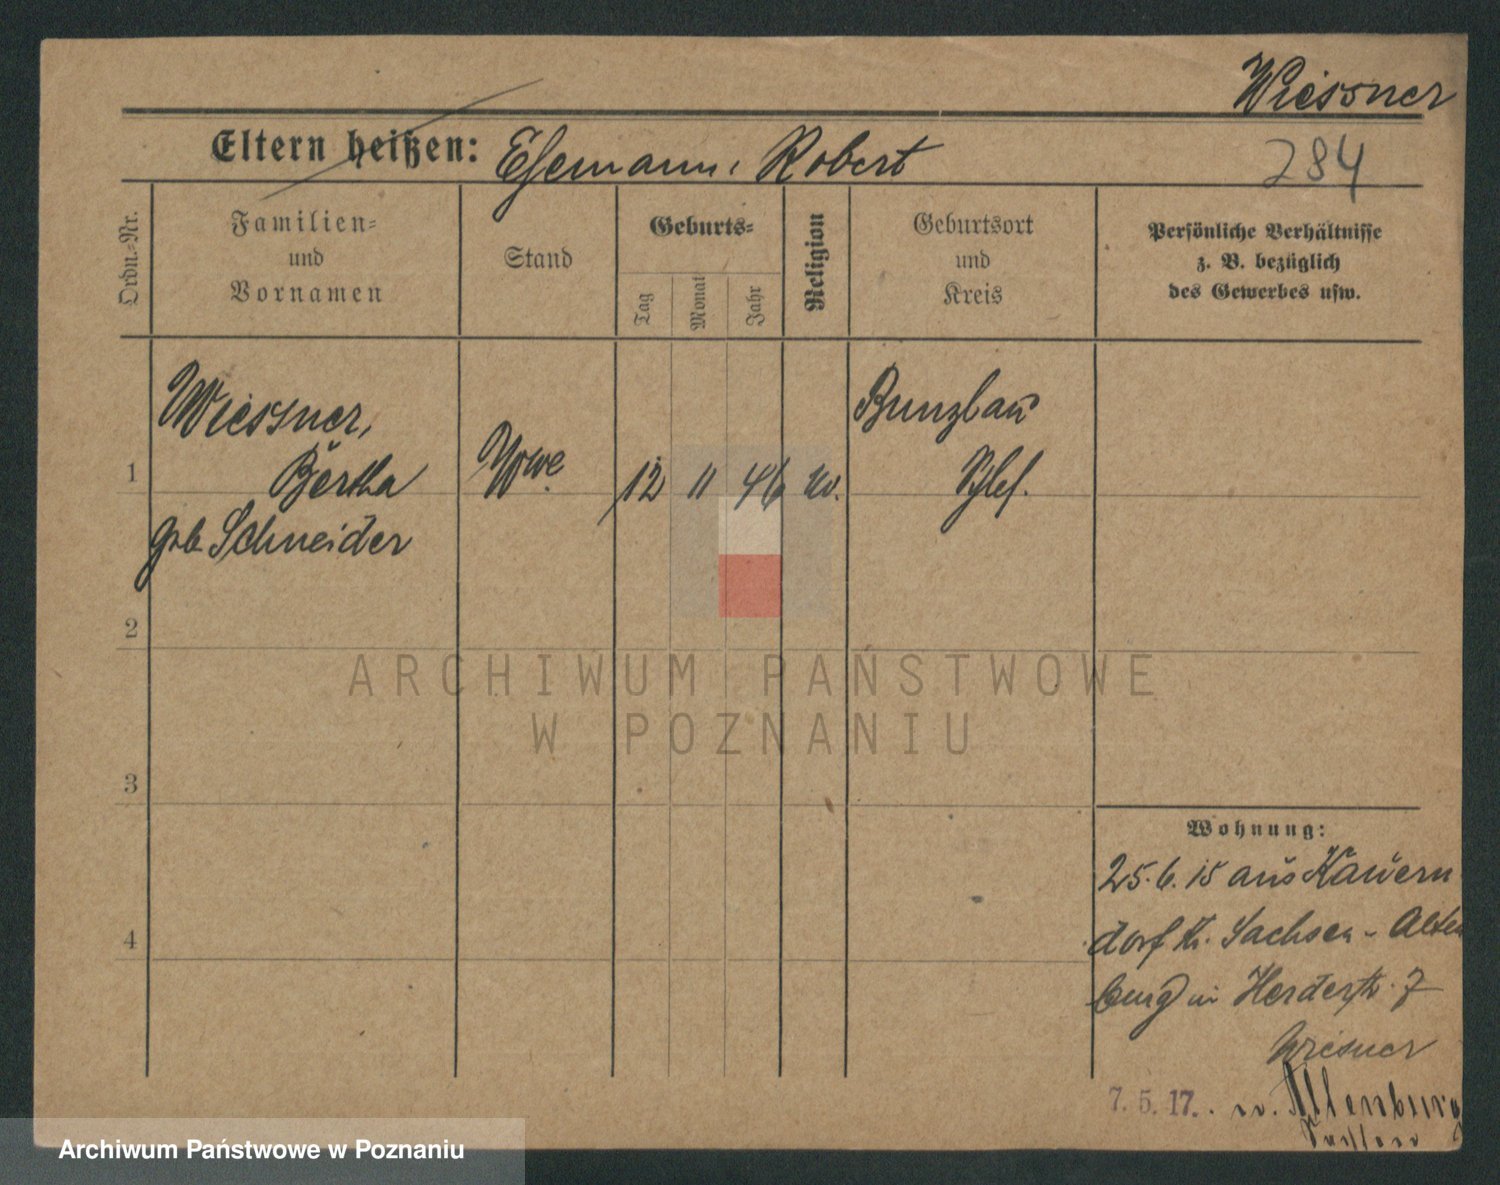 Wiessner
Eltern heißen: Ehemann: Robert
284
Ordn.-Nr.
Familien-
und
Vornamen
Stand
Geburts-
Tag
Monat
Jahr
Religion
Geburtsort
und
Kreis
Persönliche Verhältnisse
z. B. bezüglich
des Gewerbes usw.
Wiessner,
Bertha
geb Schneider
1
Wwe
12 11 46 ev.
Bunzlau
Schles.
2
ARCHIWUM PAŃSTWOWE
W POZNANIU
3
4
Wohnung:
25.6.15 aus Kauern
dorf Kr. Sachsen-Alten
burg in Herderstr. 7
Wiesner
7. 5. 17. n. Altenburg
Sachsen
Archiwum Państwowe w Poznaniu